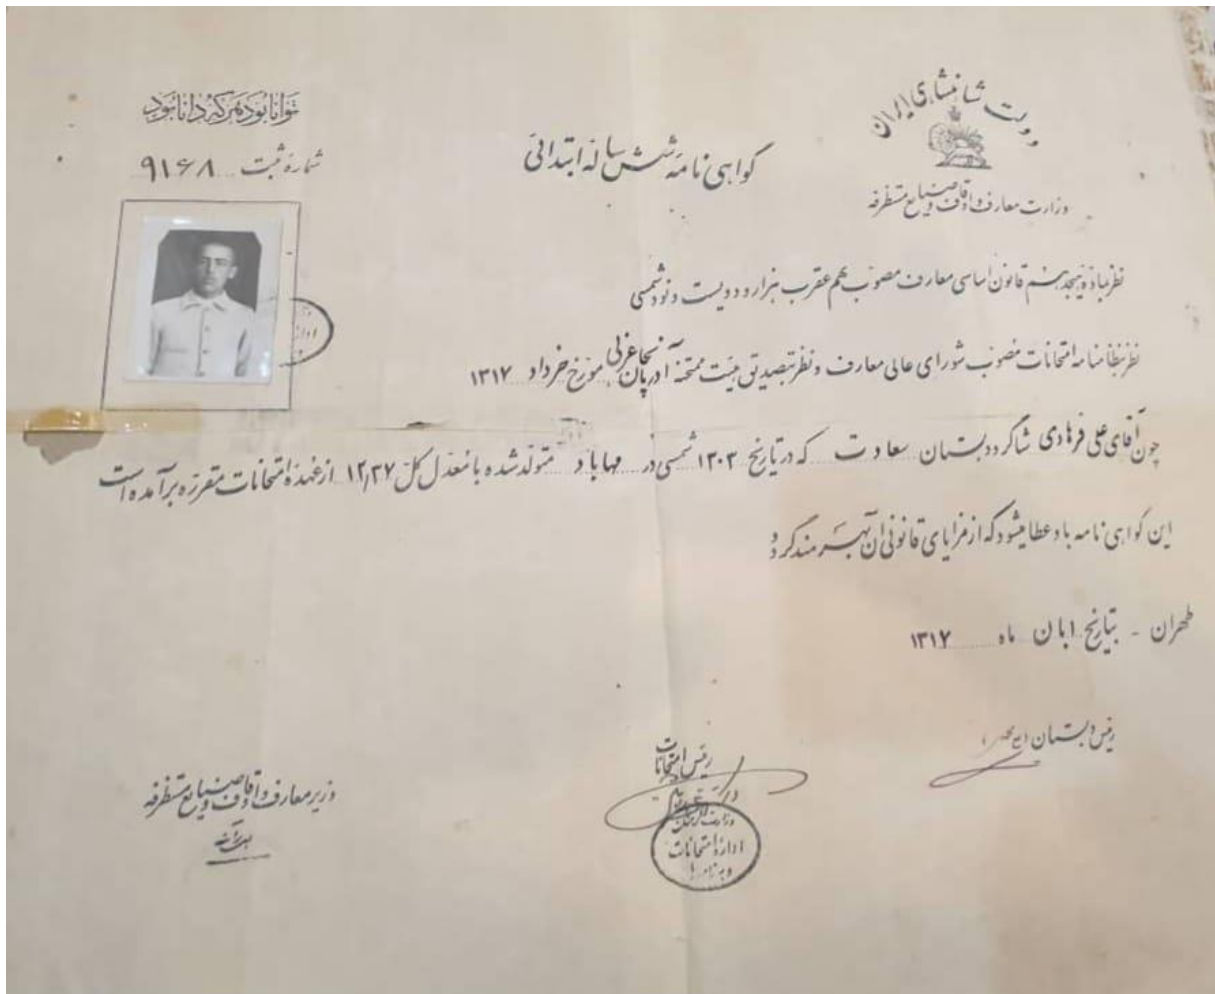 دولت شاهنشاهی ایران
وزارت معارف و اوقاف و صنایع مستظرفه
گواهی نامه شش ساله ابتدائی
توانا بود هر که دانا بود
شماره ثبت ۹۱۶۸
نظر بماده هیجدهم قانون اساسی معارف مصوب دهم عقرب هزار و دویست و نود شمسی
نظر بنظامنامه امتحانات مصوب شورای عالی معارف و نظر بتصدیق هیئت ممتحنه آذربایجان غربی مورخ خرداد ۱۳۱۷
چون آقای علی فرهادی شاگرد دبستان سعادت که در تاریخ ۱۳۰۳ شمسی در مهاباد متولد شده با معدل کل ۱۲٫۳۷ از عهده امتحانات مقرره برآمده است
این گواهی نامه باو عطا میشود که از مزایای قانونی آن بهره مند گردد
طهران - بتاریخ ابان ماه ۱۳۱۷
رئیس دبستان
رئیس امتحانات
وزیر معارف و اوقاف و صنایع مستظرفه
اداره امتحانات